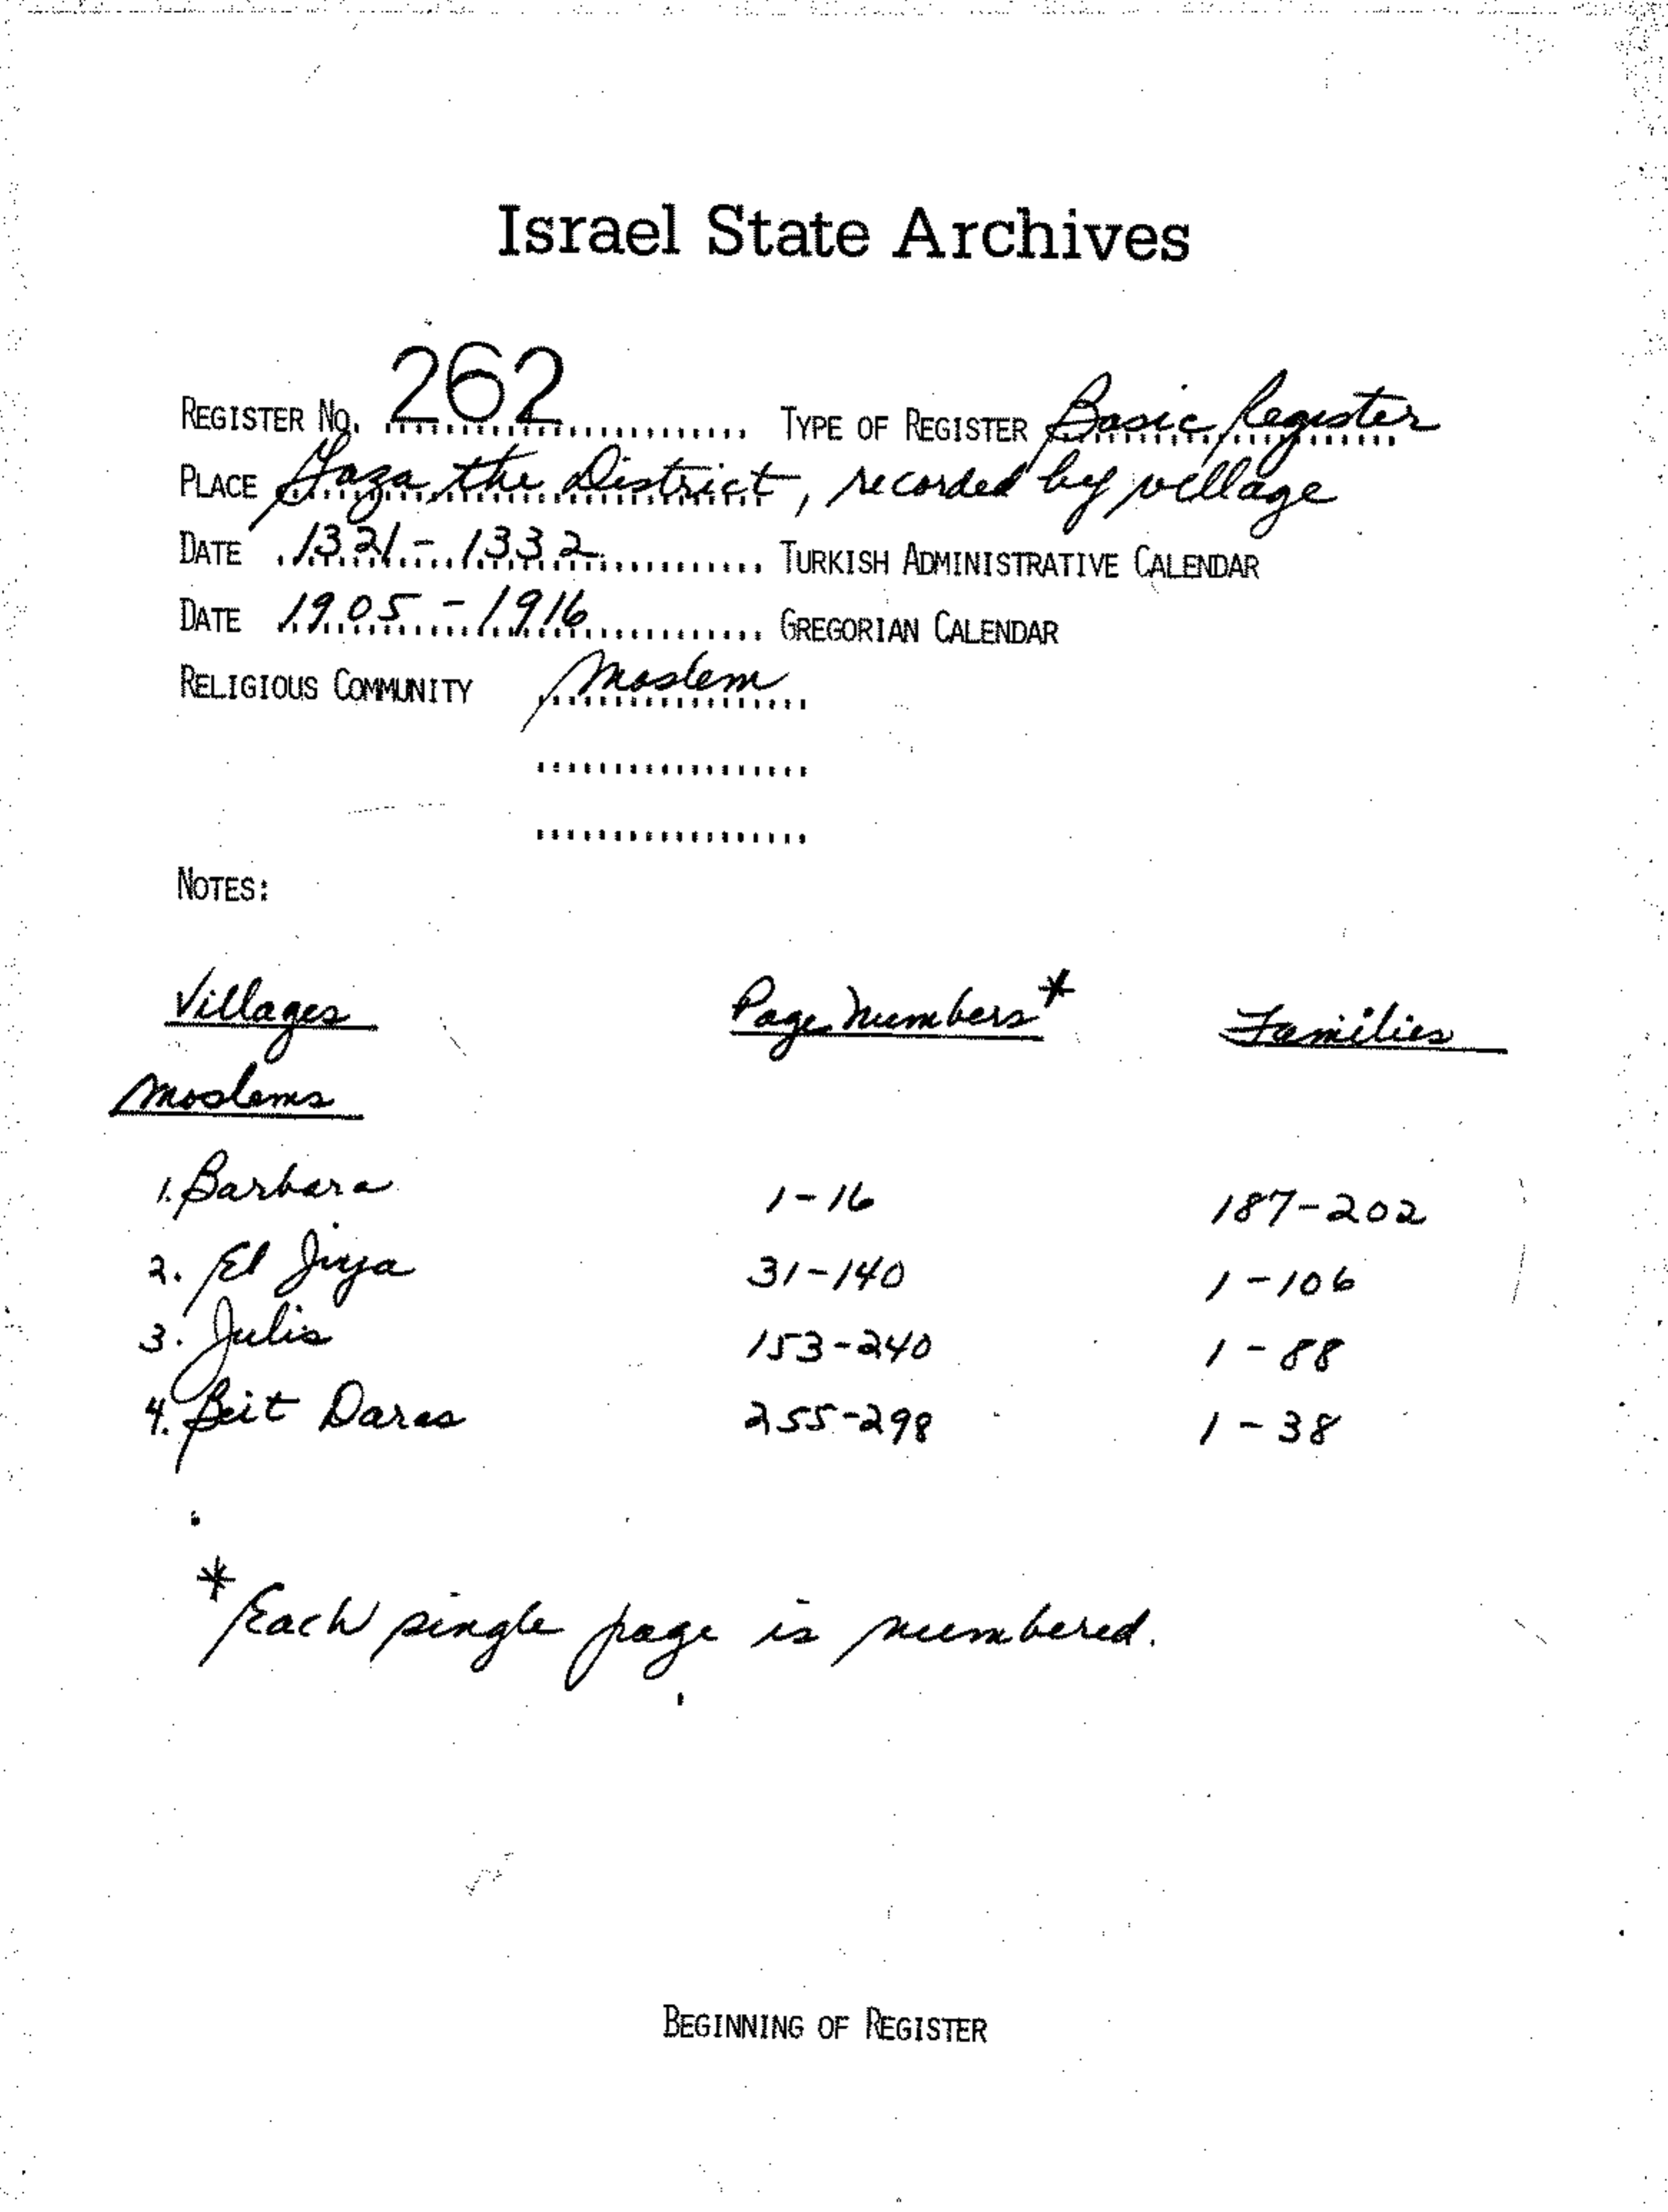 Israel State Archives
REGISTER NO. 262 TYPE OF REGISTER Basic Register
PLACE Gaza, the District, recorded by village
DATE 1321 - 1332 TURKISH ADMINISTRATIVE CALENDAR
DATE 1905 - 1916 GREGORIAN CALENDAR
RELIGIOUS COMMUNITY Moslem
NOTES:
Villages Page Numbers* Families
Moslems
1. Barbara 1-16 187-202
2. El Jiya 31-140 1-106
3. Julis 153-240 1-88
4. Beit Daras 255-298 1-38
* Each single page is numbered.
BEGINNING OF REGISTER